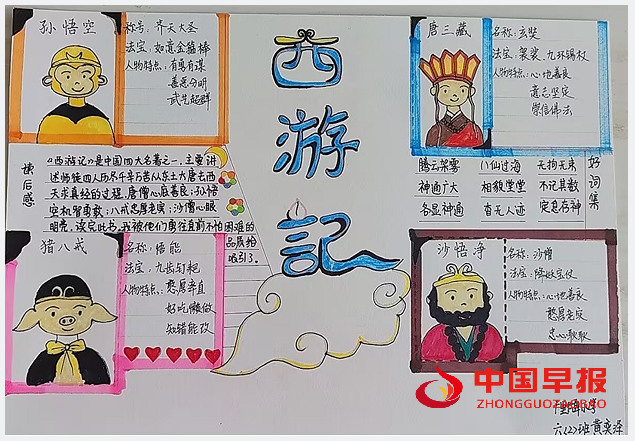 孙悟空
称号：齐天大圣
法宝：如意金箍棒
人物特点：有勇有谋
善恶分明
武艺超群
西游記
唐三藏
名称：玄奘
法宝：袈裟、九环锡杖
人物特点：心地善良
意志坚定
崇信佛法
读后感
《西游记》是中国四大名著之一，主要讲
述师徒四人历尽千辛万苦从东土大唐去西
天求真经的过程，唐僧心慈善良；孙悟
空机智勇敢；八戒忠厚老实；沙僧心眼
明亮，读完此书，我被他们勇往直前不怕困难的
品质给
吸引了。
好词集
腾云驾雾 八仙过海 无拘无束
神通广大 相貌堂堂 不记其数
各显神通 杳无人迹 定息存神
猪八戒
名称：悟能
法宝：九齿钉耙
人物特点：憨厚率直
好吃懒做
知错能改
沙悟净
名称：沙僧
法宝：降妖宝仗
人物特点：心地善良
憨厚老实
忠心耿耿
中国早报
ZHONGGUOZAOBAO
六(2)班黄奕泽